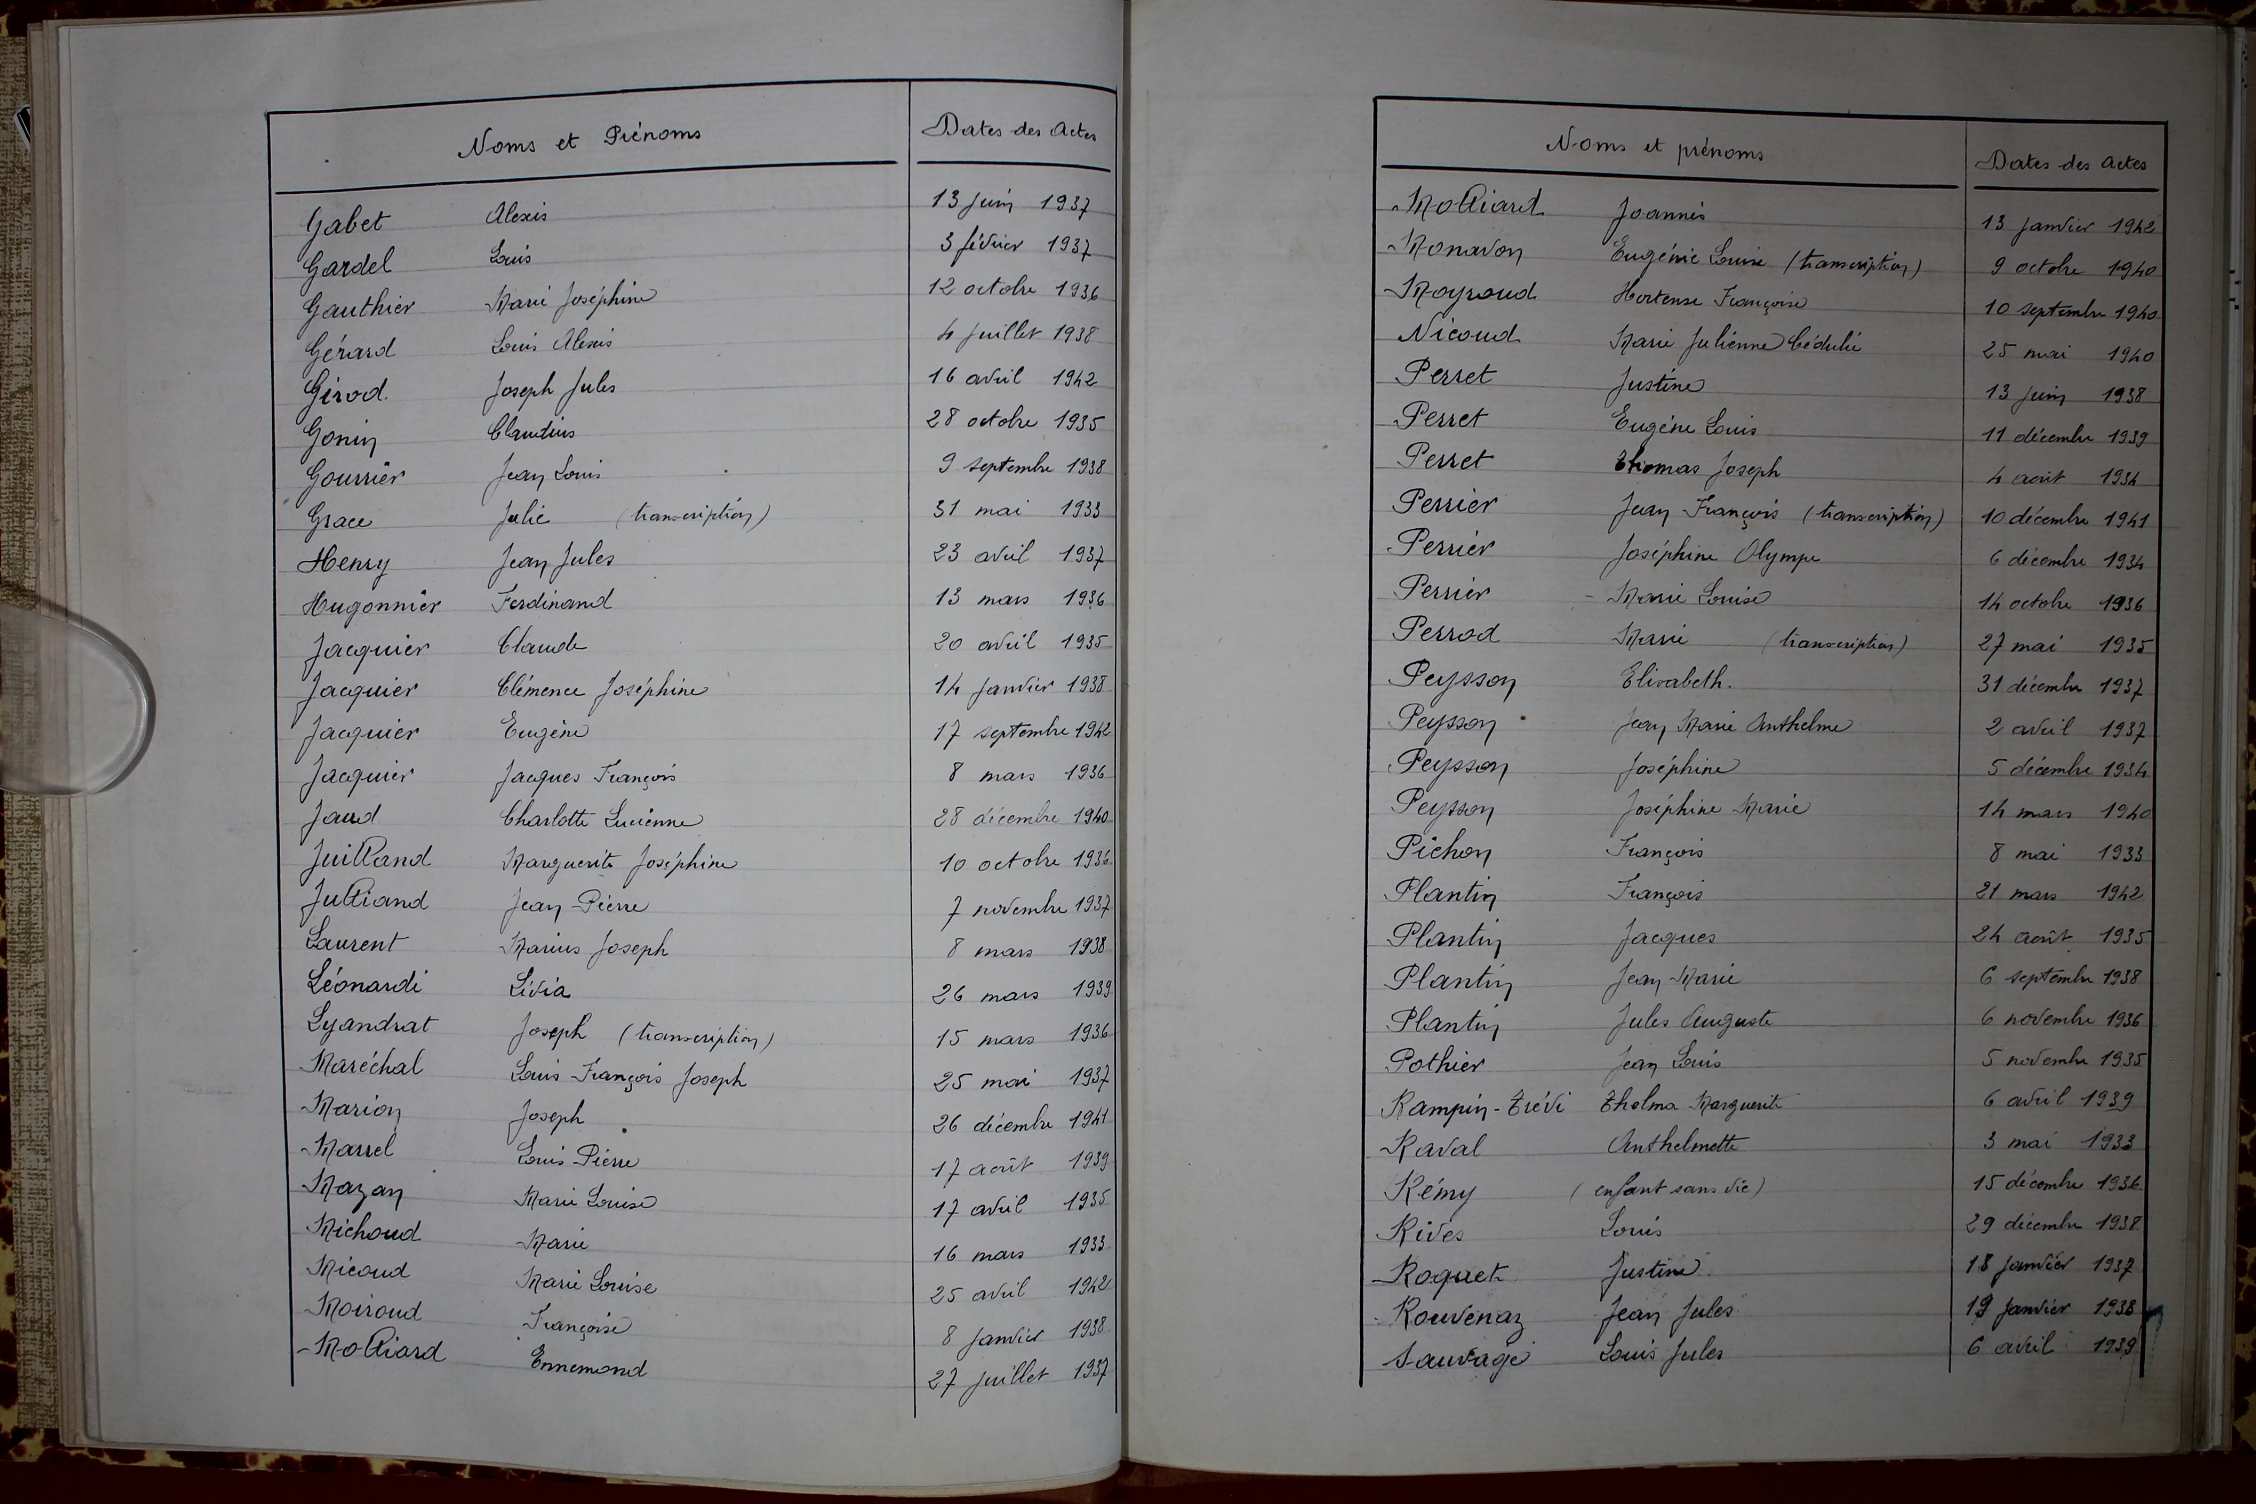 Noms et Prénoms Dates des Actes
Gabet Alexis 13 juin 1937
Gardel Louis 3 février 1937
Gauthier Marie Joséphine 12 octobre 1936
Gérard Louis Alexis 4 juillet 1938
Girod Joseph Jules 16 avril 1942
Gonin Claudius 28 octobre 1935
Gourrier Jean Louis 9 septembre 1938
Grace Julie (transcription) 31 mai 1933
Henry Jean Jules 23 avril 1937
Hugonnier Ferdinand 13 mars 1936
Jacquier Claude 20 avril 1935
Jacquier Clémence Joséphine 14 janvier 1938
Jacquier Eugène 17 septembre 1942
Jacquier Jacques François 8 mars 1936
Jaud Charlotte Lucienne 28 décembre 1940
Juilland Marguerite Joséphine 10 octobre 1936
Julliand Jean Pierre 7 novembre 1937
Laurent Marius Joseph 8 mars 1938
Léonardi Livia 26 mars 1939
Lyandrat Joseph (transcription) 15 mars 1936
Maréchal Louis François Joseph 25 mai 1937
Marion Joseph 26 décembre 1941
Marrel Louis Pierre 17 août 1939
Mazan Marie Louise 17 avril 1935
Michoud Marie 16 mars 1933
Micoud Marie Louise 25 avril 1942
Moiroud Françoise 8 janvier 1938
Molliard Ennemond 27 juillet 1937
Noms et prénoms Dates des Actes
Molliard Joannès 13 janvier 1942
Monavon Eugénie Louise (transcription) 9 octobre 1940
Moyroud Hortense Françoise 10 septembre 1940
Nicoud Marie Julienne Cédulie 25 mai 1940
Perret Justine 13 juin 1938
Perret Eugène Louis 11 décembre 1939
Perret Thomas Joseph 4 août 1934
Perrier Jean François (transcription) 10 décembre 1941
Perrier Joséphine Olympe 6 décembre 1934
Perrier Marie Louise 14 octobre 1936
Perrod Marie (transcription) 27 mai 1935
Peysson Elisabeth. 31 décembre 1937
Peysson Jean Marie Anthelme 2 avril 1937
Peysson Joséphine 5 décembre 1934
Peysson Joséphine Marie 14 mars 1940
Pichon François 8 mai 1933
Plantin François 21 mars 1942
Plantin Jacques 24 août 1935
Plantin Jean Marie 6 septembre 1938
Plantin Jules Auguste 6 novembre 1936
Pothier Jean Louis 5 novembre 1935
Rampin-Trévi Thelma Marguerite 6 avril 1939
Raval Anthelmette 3 mai 1933
Rémy (enfant sans vie) 15 décembre 1936
Rives Louis 29 décembre 1938
Roquet Justine 18 janvier 1937
Rouvenaz Jean Jules 19 janvier 1938
Sauvage Louis Jules 6 avril 1939